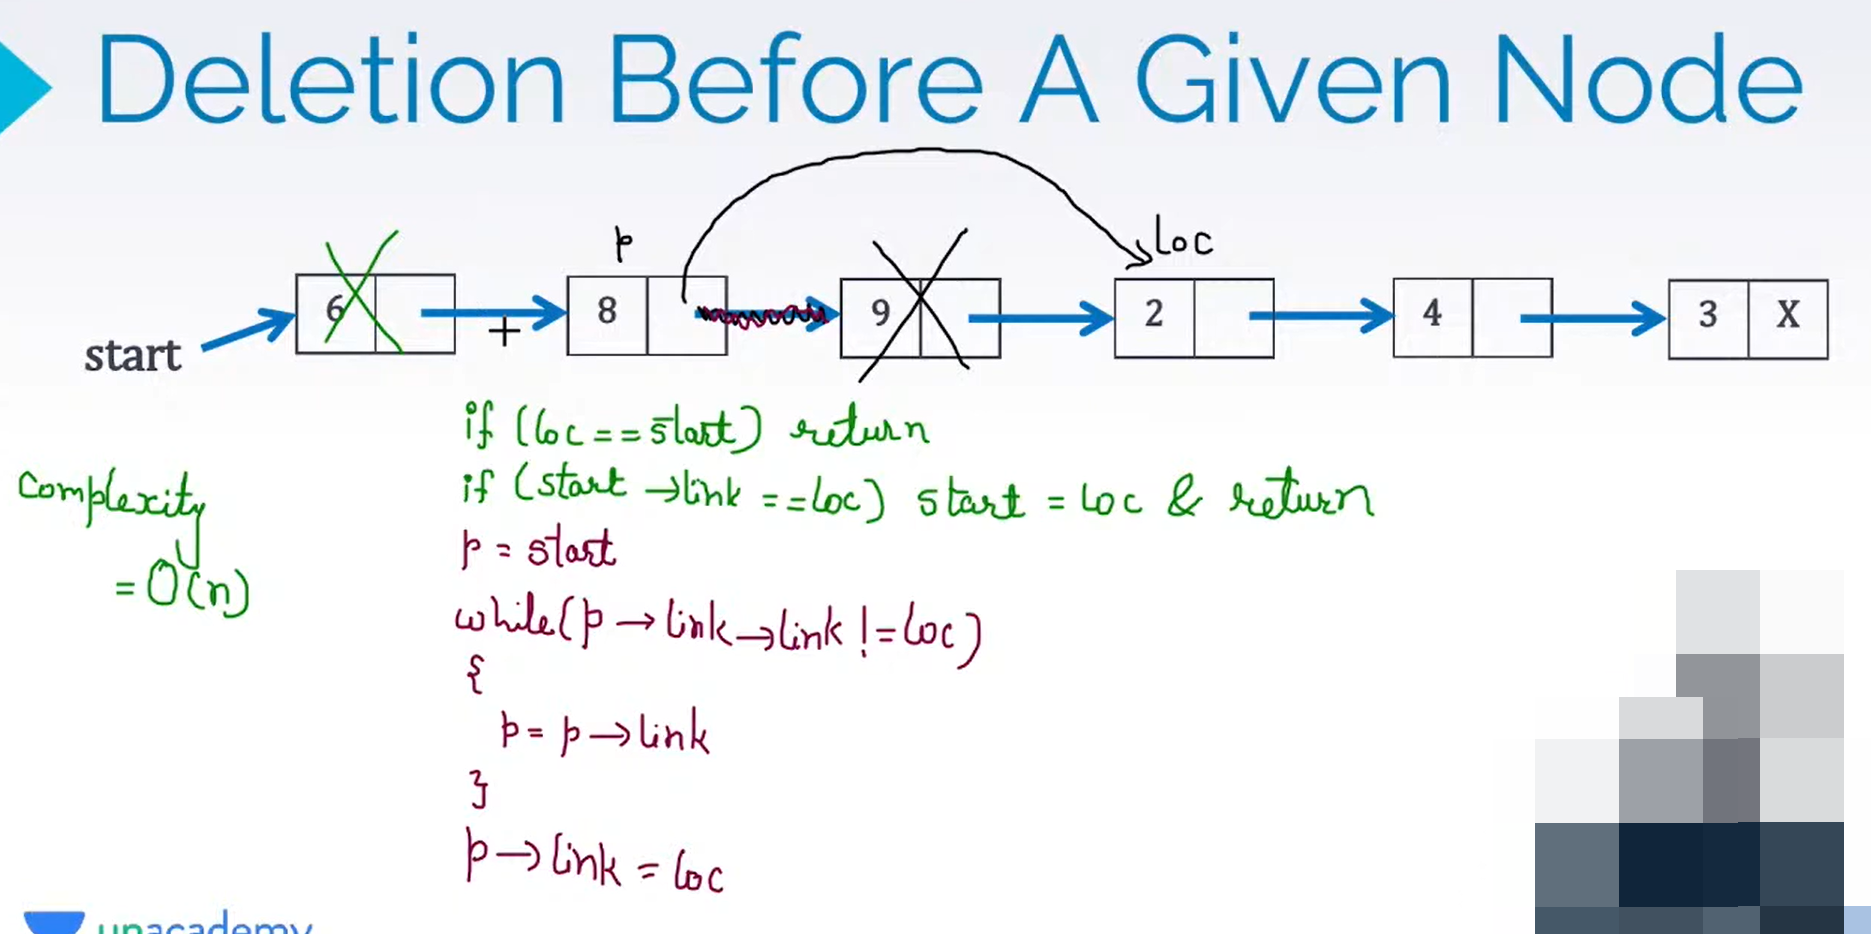 Deletion Before A Given Node
p
Loc
start 6 8 9 2 4 3 X
if (loc == start) return
if (start → link == loc) start = loc & return
complexity
= O(n)
p = start
while(p → link → link != loc)
{
p = p → link
}
p → link = loc
unacademy